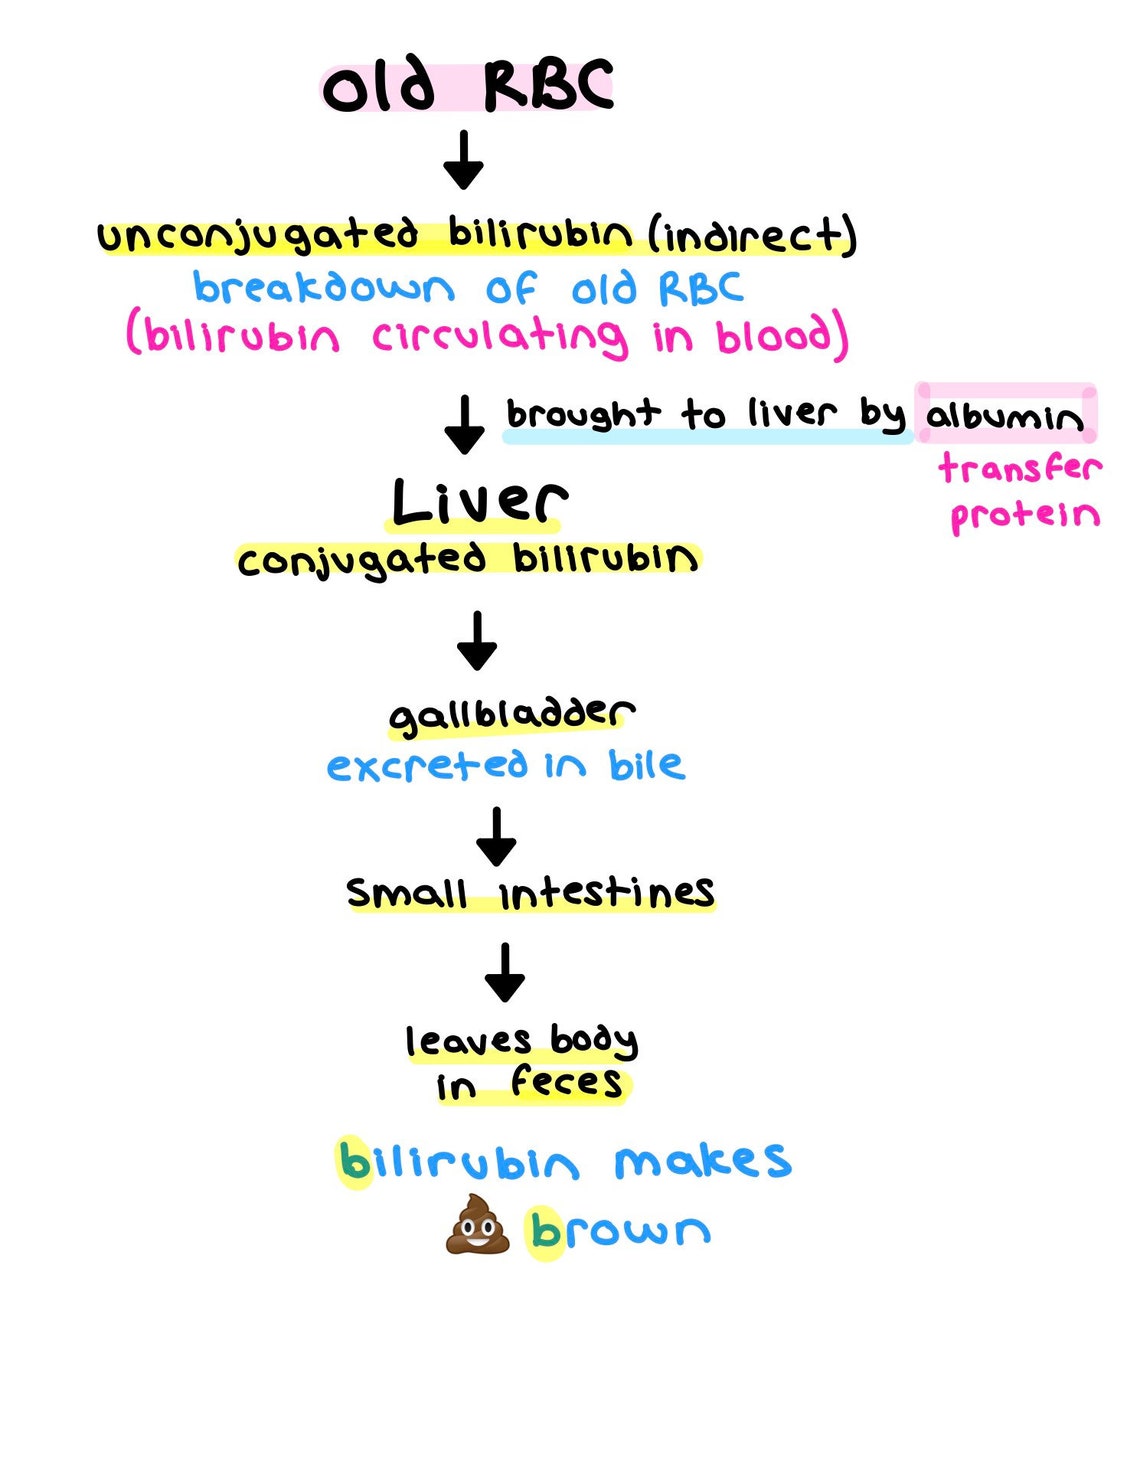 old RBC
unconjugated bilirubin (indirect)
breakdown of old RBC
(bilirubin circulating in blood)
brought to liver by albumin
transfer
protein
Liver
conjugated bilirubin
gallbladder
excreted in bile
Small intestines
leaves body
in feces
bilirubin makes
💩 brown